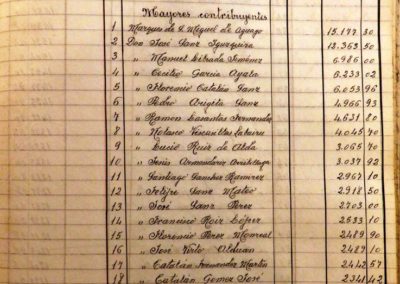 Mayores contribuyentes
1 Marques de S. Miguel de Aguayo 15.177 30
2 Don José Sanz 13.363 50
3 " Manuel Estrada Jiménez 6.986 00
4 " Cecilio Garcia Ayala 6.233 02
5 " Florencio Catalán Sanz 6.053 96
6 " Pedro Sanz 4.966 93
7 " Ramon Fernandez 4.631 80
8 " 4.045 70
9 " Lucio Ruiz de Alda 3.065 70
10 " Jesús 3.037 92
11 " Santiago Sanchez Ramirez 2.967 10
12 " Felipe Sanz Mateo 2.918 50
13 " José Sanz Pérez 2.703 00
14 " Francisco Ruiz López 2.533 10
15 " Florencio Pérez Monreal 2.489 90
16 " José 2.489 10
17 " Catalán Fernandez Martin 2.442 57
18 " Catalán Gomez José 2.341 42